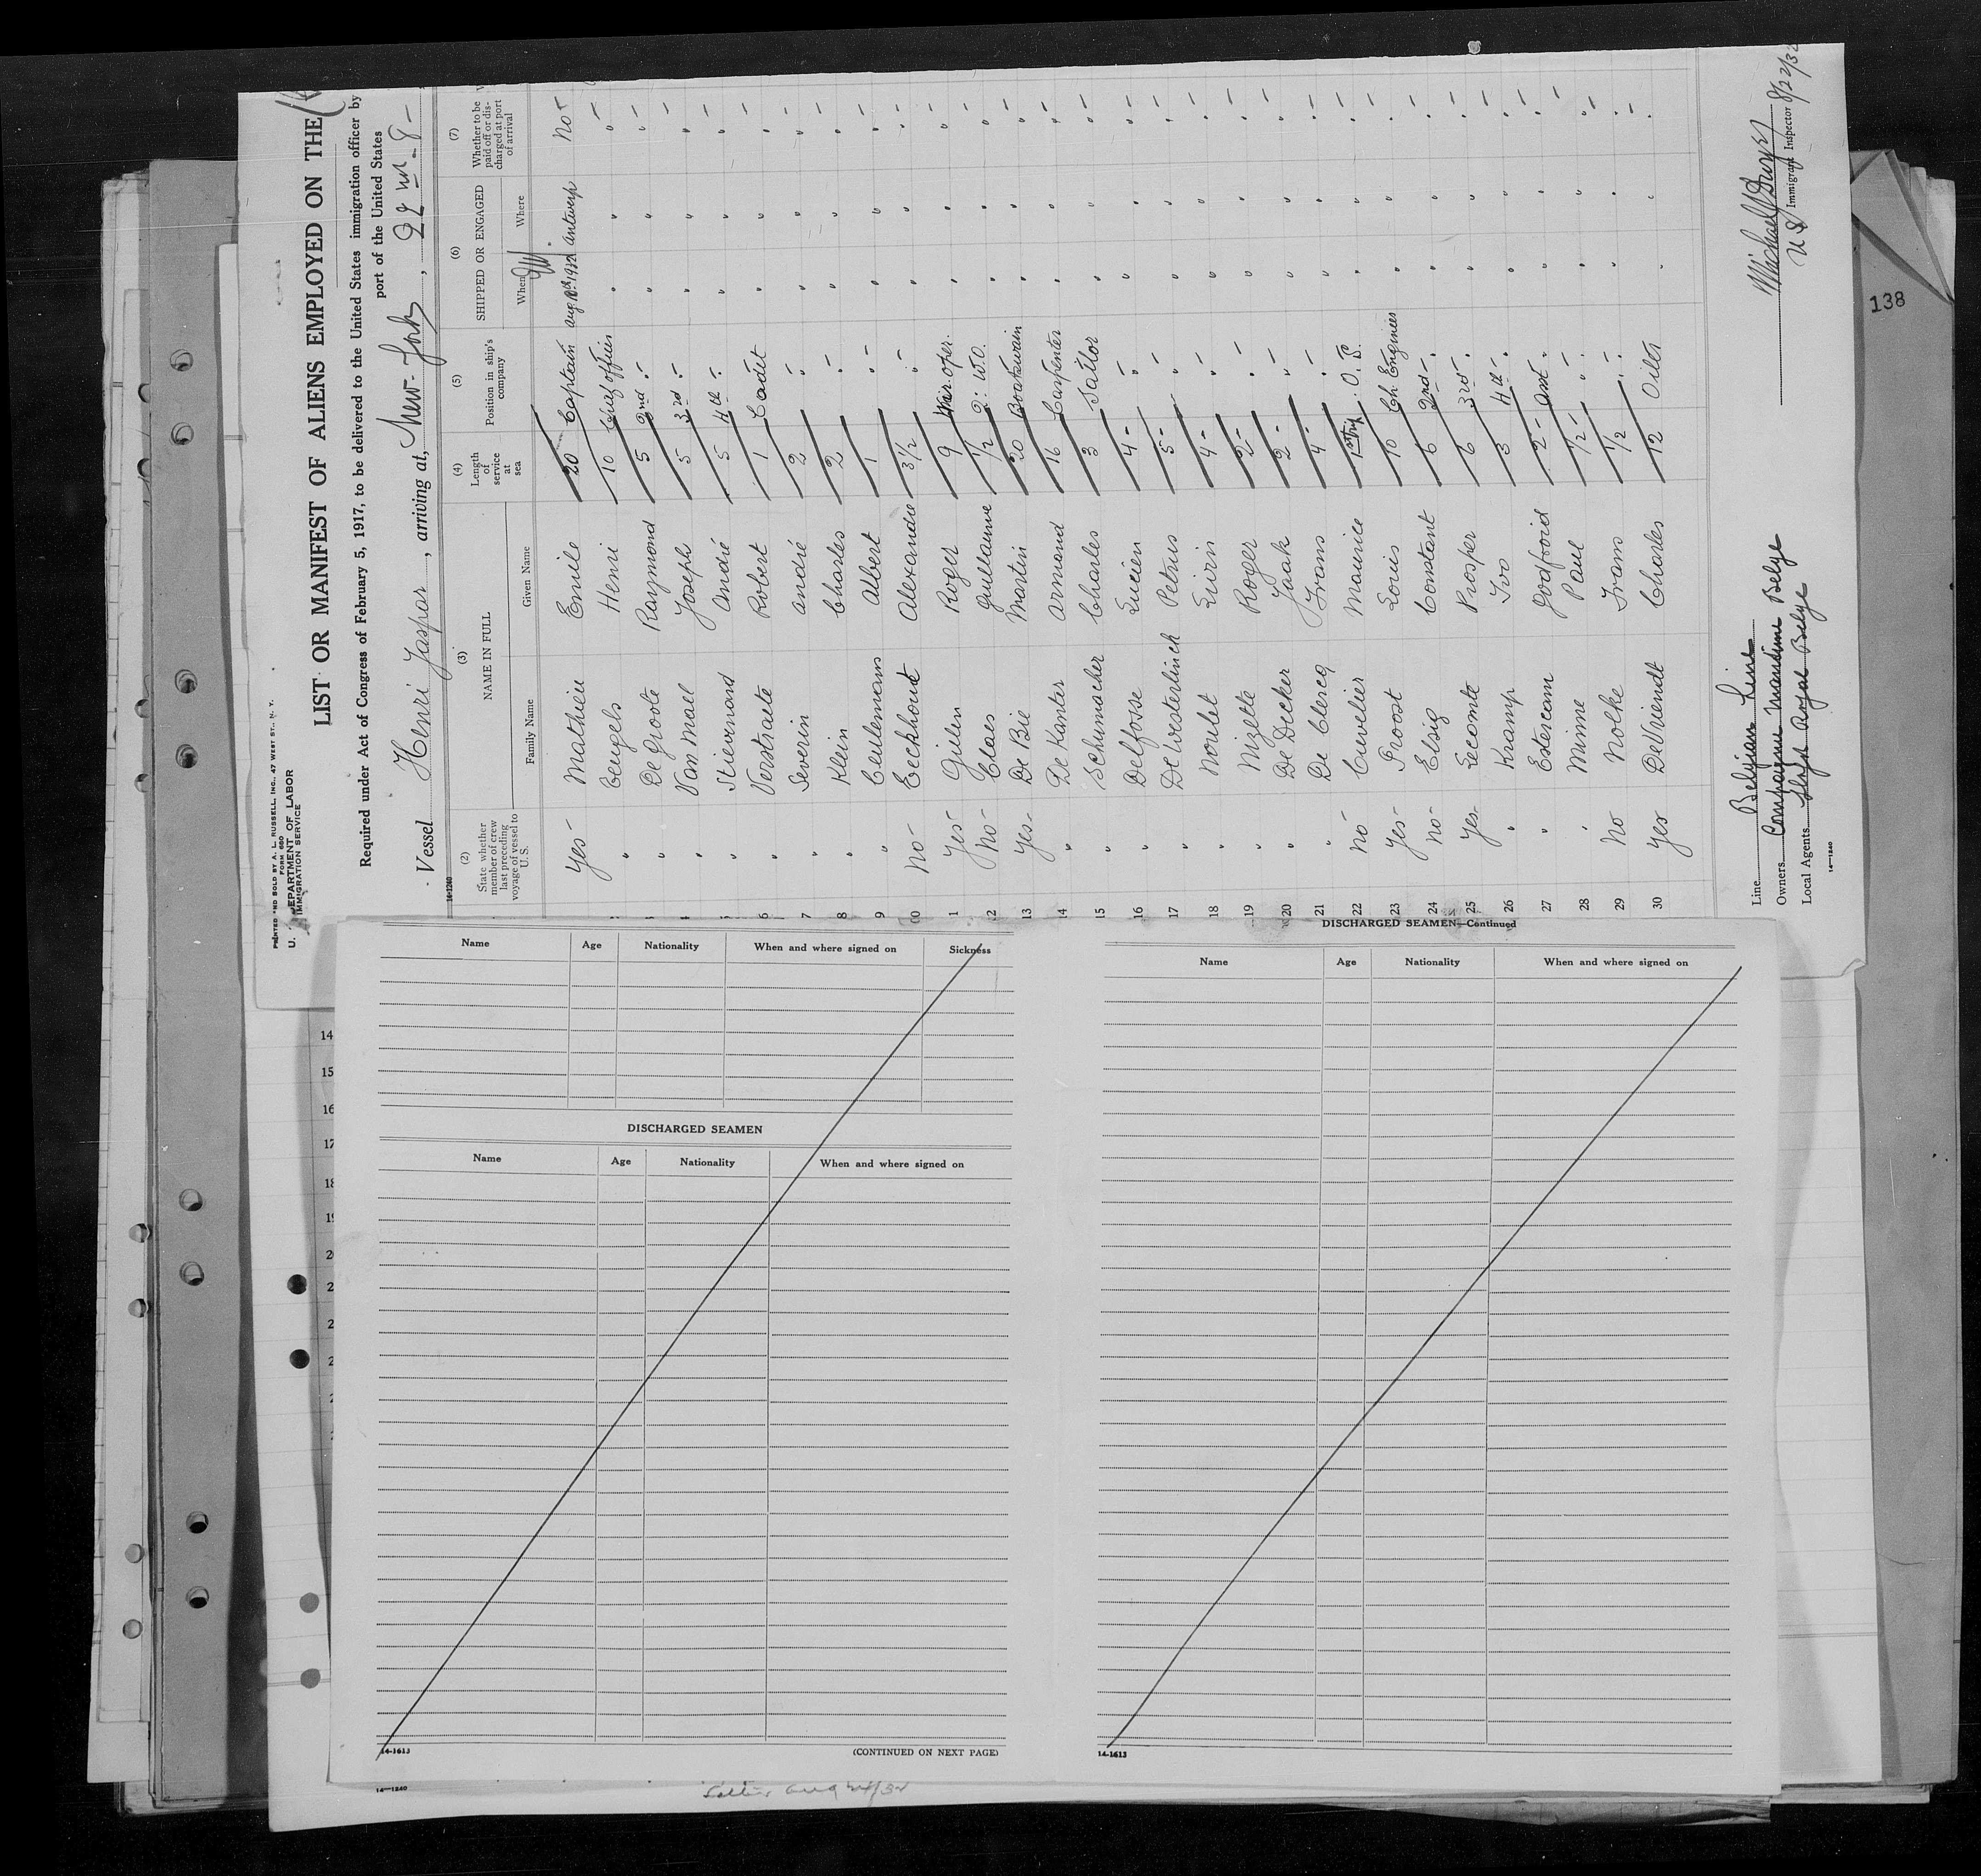 PRINTED AND SOLD BY A. L. RUSSELL, INC., 47 WEST ST., N. Y.
FORM 680
U. DEPARTMENT OF LABOR
IMMIGRATION SERVICE
LIST OR MANIFEST OF ALIENS EMPLOYED ON THE
Required under Act of Congress of February 5, 1917, to be delivered to the United States immigration officer by
port of the United States
Vessel Henri Jaspar, arriving at, New-York, 22nd - 8 -
14-1240
(2) (3) (4) (5) (6) (7)
State whether member of crew last preceding voyage of vessel to U.S. NAME IN FULL Length of service at sea Position in ship's company SHIPPED OR ENGAGED Whether to be paid off or discharged at port of arrival
Family Name Given Name When Where
Yes- Mathieu Emile 20 Captain aug 1932 antwerp No -
" Ceugels Henri 10 Chief officer " " " -
" De Groote Raymond 5 2nd - " " " -
" Van Meel Joseph 5 3rd - " " " -
5 " Stievenard André 5 4th - " " " -
6 " Verstraete Robert 1 Cadet " " " -
7 " Severin andré 2 " - " " " -
8 " Klein Charles 2 " - " " " -
9 " Ceulemans Albert 1 " - " " " -
10 No- Eeckhout Alexandre 3 1/2 " - " " " -
1 Yes Gielen Roger 9 oper. " " " -
12 No- Claes Guillaume 1/2 2: W.O. " " " -
13 Yes- De Bie Martin 20 Boatswain " " " -
14 " De Kanter Armand 16 Carpenter " " " -
15 " Schumacher Charles 3 Sailor " " " -
16 " Delfosse Lucien 4- " - " " " -
17 " De Westerlinck Petrus 5- " - " " " -
18 " Noulet 4- " - " " " -
19 " Mizette Roger 2- " - " " " -
20 " De Decker Jaak 2- " - " " " -
21 " De Clercq Frans 4- " - " " " -
22 No- Cuvelier Maurice 1st trip O. S. " " " -
23 Yes- Proost Louis 10 Ch. Engineer " " " -
24 No- Elsig Constant 6 2nd - " " " -
25 Yes- Lecomte Prosper 6 3rd - " " " -
26 " Kramp Ivo 3 4th - " " " -
27 " Estercam Godfroid 2- Asst. " " " -
28 " Minne Paul 1/2- " - " " " -
29 No Nolke Frans 1/2 " - " " " -
30 Yes De Vriendt Charles 12 Oiler " " "
Line Belgian Line
Owners Compagnie Maritime Belge
Local Agents Lloyd Royal Belge
14-1240
U S Immigrant Inspector 8/22/32
138
Name Age Nationality When and where signed on Sickness
DISCHARGED SEAMEN
Name Age Nationality When and where signed on
14-1613 (CONTINUED ON NEXT PAGE)
DISCHARGED SEAMEN—Continued
Name Age Nationality When and where signed on
14-1613
14
15
16
17
18
19
20
2
2
2
14-1240